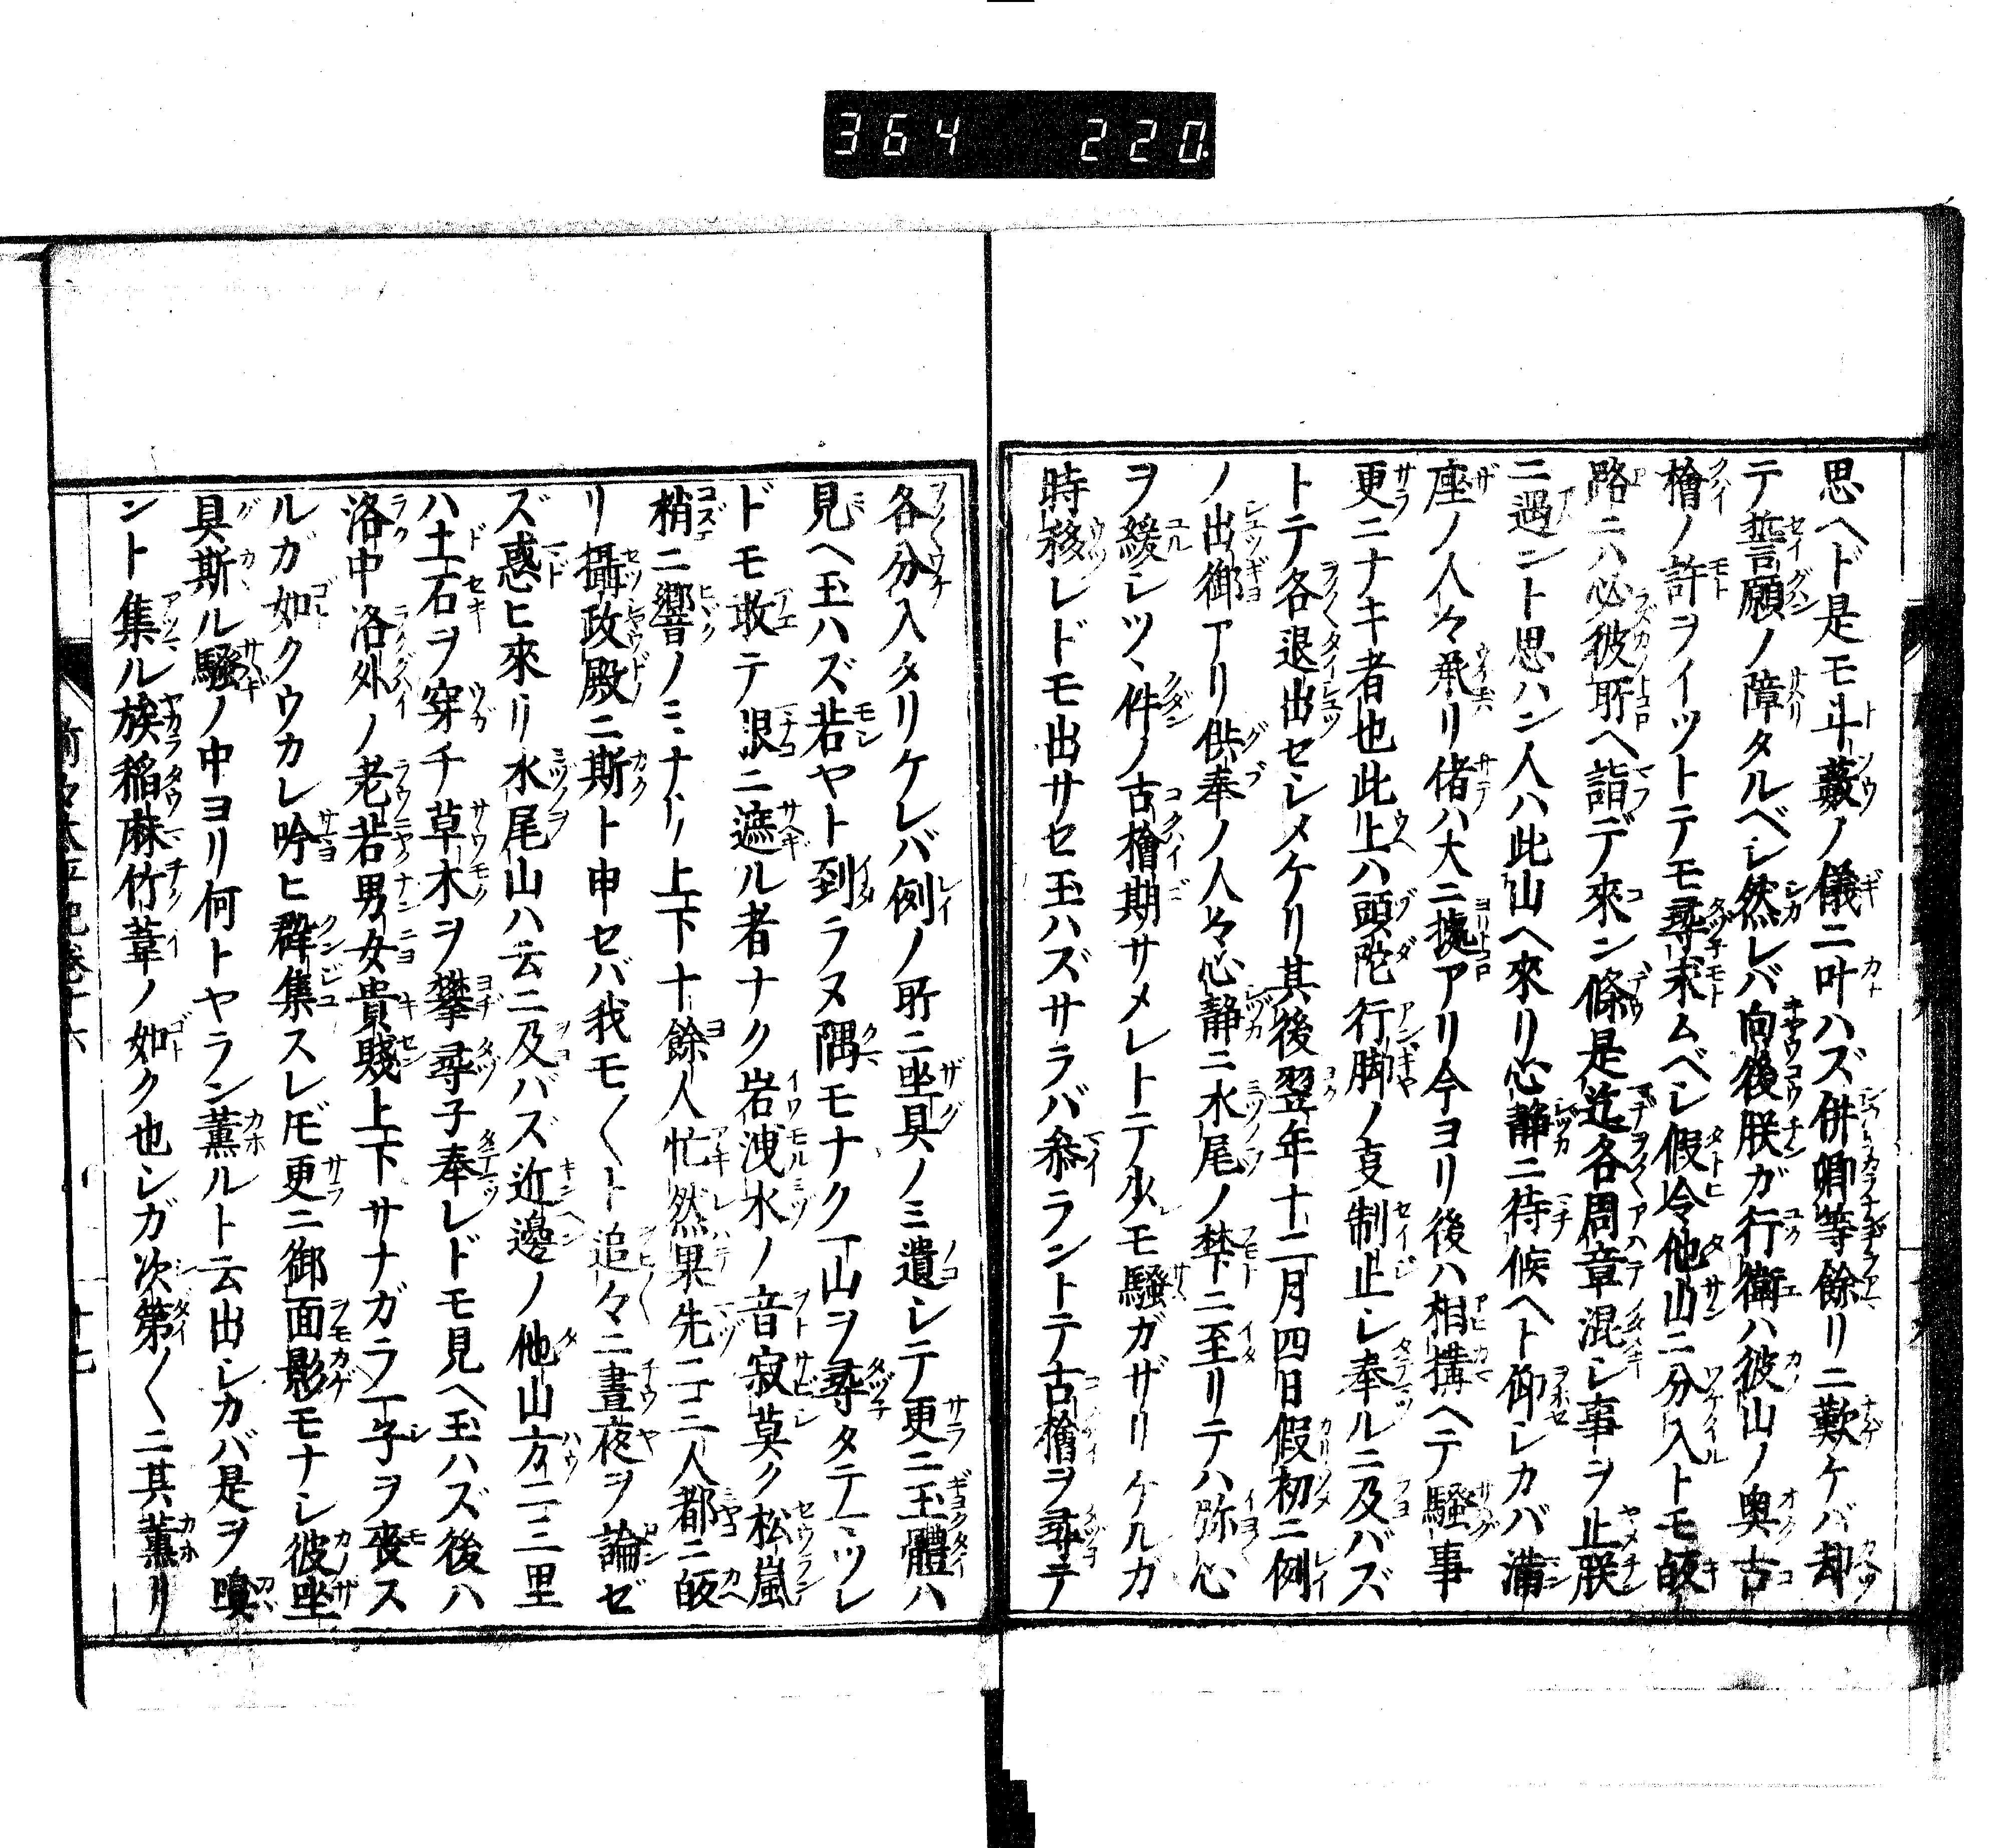 364 220
思ヘド是モ斗藪ノ儀ニ叶ハズ併卿等餘リニ歎ケバ却
テ誓願ノ障タルベシ然レバ向後朕ガ行衛ハ彼山ノ奥古
檜ノ許ヲイツトテモ尋求ムベシ假令他山ニ分入トモ皈
路ニハ必彼所ヘ詣デ來ン條是迄各周章混シ事ヲ止朕
ニ遇ント思ハン人ハ此山ヘ來リ心静ニ待候ヘト仰シカバ満
座ノ人々承リ偖ハ大ニ據アリ今ヨリ後ハ相搆ヘテ騒事
更ニナキ者也此上ハ頭陀行脚ノ叓制止シ奉ルニ及バズ
トテ各退出セシメケリ其後翌年十二月四日假初ニ例
ノ出御アリ供奉ノ人々心静ニ水尾ノ梺ニ至リテハ弥心
ヲ緩シツヽ件ノ古檜期サメレトテ少モ騒ガザリケルガ
時移レドモ出サセ玉ハズサラバ叅ラントテ古檜ヲ尋テ
各分入タリケレバ例ノ所ニ坐具ノミ遺シテ更ニ玉體ハ
見ヘ玉ハズ若ヤト到ラヌ隅モナク一山ヲ尋タテマツレ
ドモ敢テ眼ニ遮ル者ナク岩洩水ノ音寂莫ク松嵐
梢ニ響ノミナリ上下十餘人忙然果先二三人都ニ皈
リ攝政殿ニ斯ト申セバ我モ〱ト追々ニ晝夜ヲ論ゼ
ズ惑ヒ來リ水尾山ハ云ニ及バズ近邊ノ他山方二三里
ハ土石ヲ穿チ草木ヲ攀尋子奉レドモ見ヘ玉ハズ後ハ
洛中洛外ノ老若男女貴賤上下サナガラ一子ヲ喪ス
ルガ如クウカレ吟ヒ群集スレ𪜈更ニ御面影モナシ彼坐
具斯ル騒ノ中ヨリ何トヤラン薫ルト云出シカバ是ヲ嗅
ント集ル族稲麻竹葦ノ如ク也シガ次第〱ニ其薫リ
前々太平記巻十六 十七